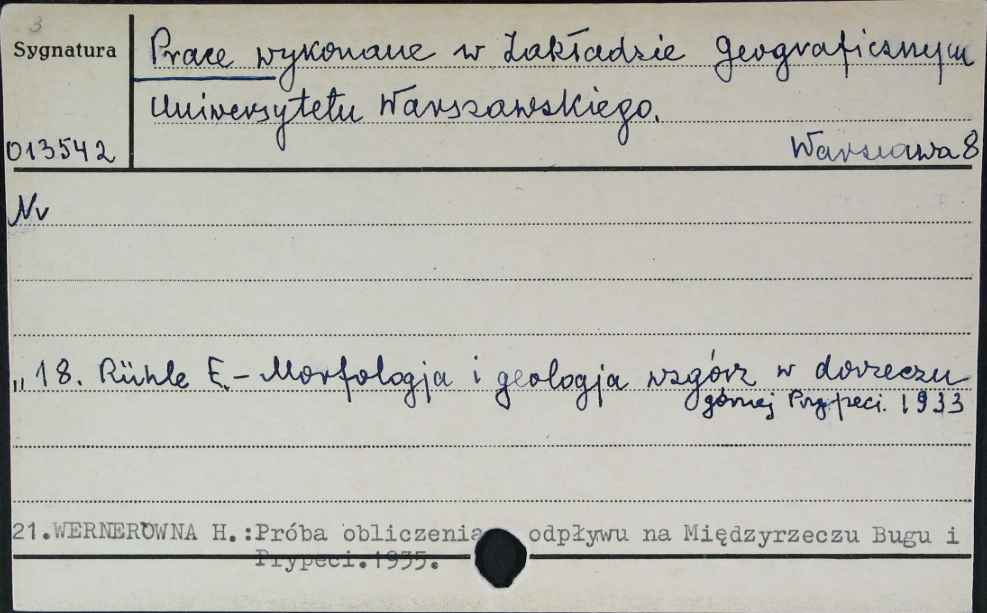 3
Sygnatura
Prace wykonane w Zakładzie Geograficznym
Uniwersytetu Warszawskiego.
013542
Warszawa 8
Nr
„ 18. Rühle E. – Morfologja i geologja wzgórz w dorzeczu
górnej Prypeci. 1933
21.WERNERÓWNA H.:Próba obliczenia odpływu na Międzyrzeczu Bugu i
Prypeci.1935.